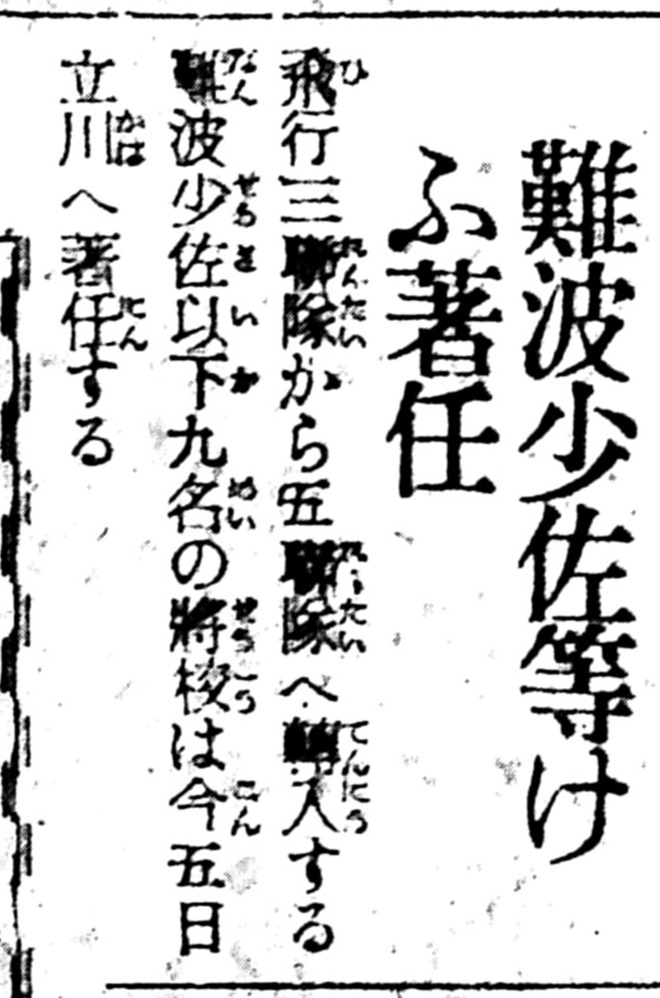 難波少佐等け
ふ著任
飛行三聯隊から五聯隊へ轉入する
難波少佐以下九名の將校は今五日
立川へ著任する